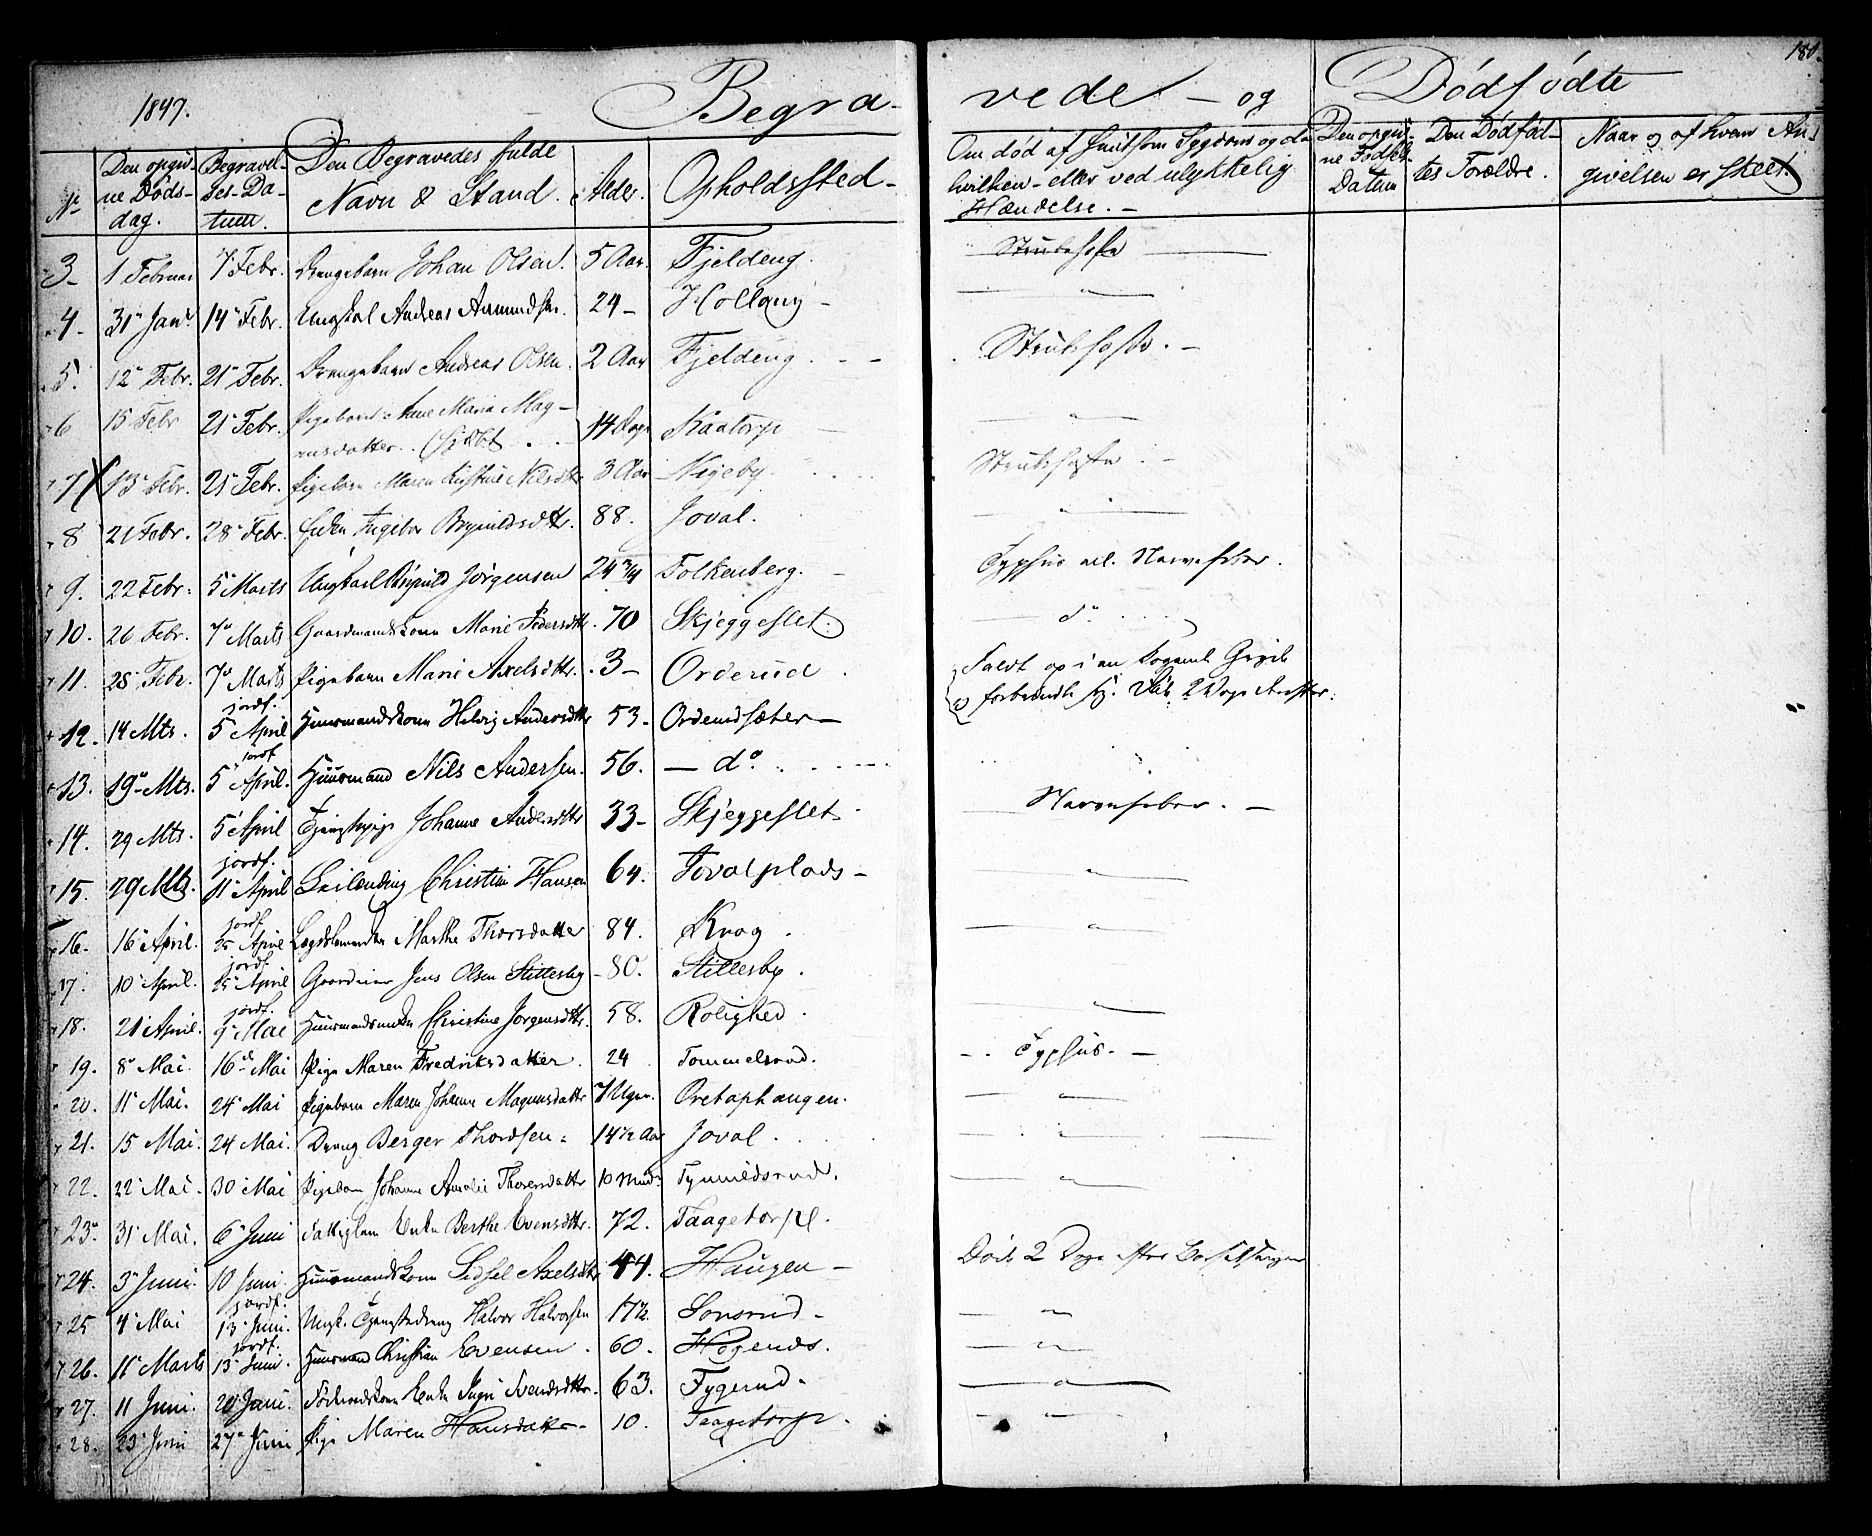 180.
1847. Begra- vede - og Dödfödte
No Den opgivne Dödsdag. Begravelses-Datum. Den Begravedes fulde Navn & Stand. Alder. Opholdssted - Om död af smitsom Sygdom og da hvilken - eller ved ulykkelig Hændelse. - Den opgivne Födsels Datum Den Dödfödtes Forældre. Naar og af hvem Angivelsen er skeet.
3 1 Februar 7 Febr. Drengebarn Johan Olsen. 5 Aar. Fjeldeng. Strubehoste
4. 31 Janr 14 Febr. Ungkal Andreas Amundsen. 24 -
5. 12 Febr. 21 Febr. Drengebarn Andreas Olsen. 2 Aar Fjeldeng. Strubehoste. -
6 15 Febr 21 Febr. Pigebarn Anne Maria Mag-
nusdatter. 14 Dage Kaatorp
7 13 Febr. 21 Febr. Pigebarn Maren Kirstine Nilsdtr 3 Aar Nigeby. Strubehoste
8 21 Febr. 28 Febr. Enken Ingebor Brynildsdttr. 88. Joval.
9. 22 Febr. 5 Marts Ungkarl Brynild Jörgensen 24 3/4 Folkenberg. Typhus ell. Nervefeber.
10. 26 Febr. 7 Marts Gaardmandskone Marie Pedersdttr. 70 Skjeggeslet. do
11. 28 Febr. 7 Marts Pigebarn Marie Axelsdttr. 3 - Orderud. Faldt op i en kogende Gryde
forbrændte sig. Död 2 Dage derefter.
12. 14 Mts. jordf. 5 April Huusmandskone Helvig Andersdttr 53 - Orderudsæter -
13. 19 Mts. jordf. 5 April. Huusmand Nils Andersen. 56. - do.
14. 29 Mts. 5 April Tjenestepige Johanne Andersdttr 33 - Skjeggeslet Nervefeber. -
15. 29 Mts. jordf. 11 April Leilænding Christian Hansen 64. Jovalplads -
16. 16 April. jordf. 25 April Lægdslem Enke Marthe Thorsdatter 84. Krog.
17. 10 April. jordf. 25 April Gaardeier Jens Olsen Stittesby - 80. Stillesby.
18. 21 April. jordf. 9 Mai Huusmandsenken Christine Jörgensdttr. 58. Rolighed.
19. 8 Mai. 16 Mai Pige Maren Fredriksdatter. 24 Tommelsrud. Typhus. -
20. 11 Mai. 24 Mai Pigebarn Maren Johanne Magnusdatter 7 Uger. Oretophaugen.
21. 15 Mai. 24 Mai. Dreng Berger Thordsen. 14 1/2 Aar Joval.
22. 22 Mai. 30 Mai Pigebarn Johanne Amalie Thoresdatter 10 Mnd.
23. 31 Mai. 6 Juni Fattiglem Enke Berthe Evensdttr. 72. Taagetorp.
24. 3 Juni. 10 Juni. Huusmandskone Sidsel Axelsdtr 44. Haugen - Död 2 Dage efter Barselsengen
25 4 Mai jordf. 13 Juni. Ungk. Tjenestedreng Halvor Halvorsen 17 1/2. Sonsrud -
26. 11 Marts jordf. 13 Juni. Huusmand Christian Evensen. 60.
27. 11 Juni. 20 Juni. Enke Ingri Svendsdttr. 63. Tygerud.
28. 23 Juni 27 Juni Pige Maren Hansdatter - 10. Taagetorp.